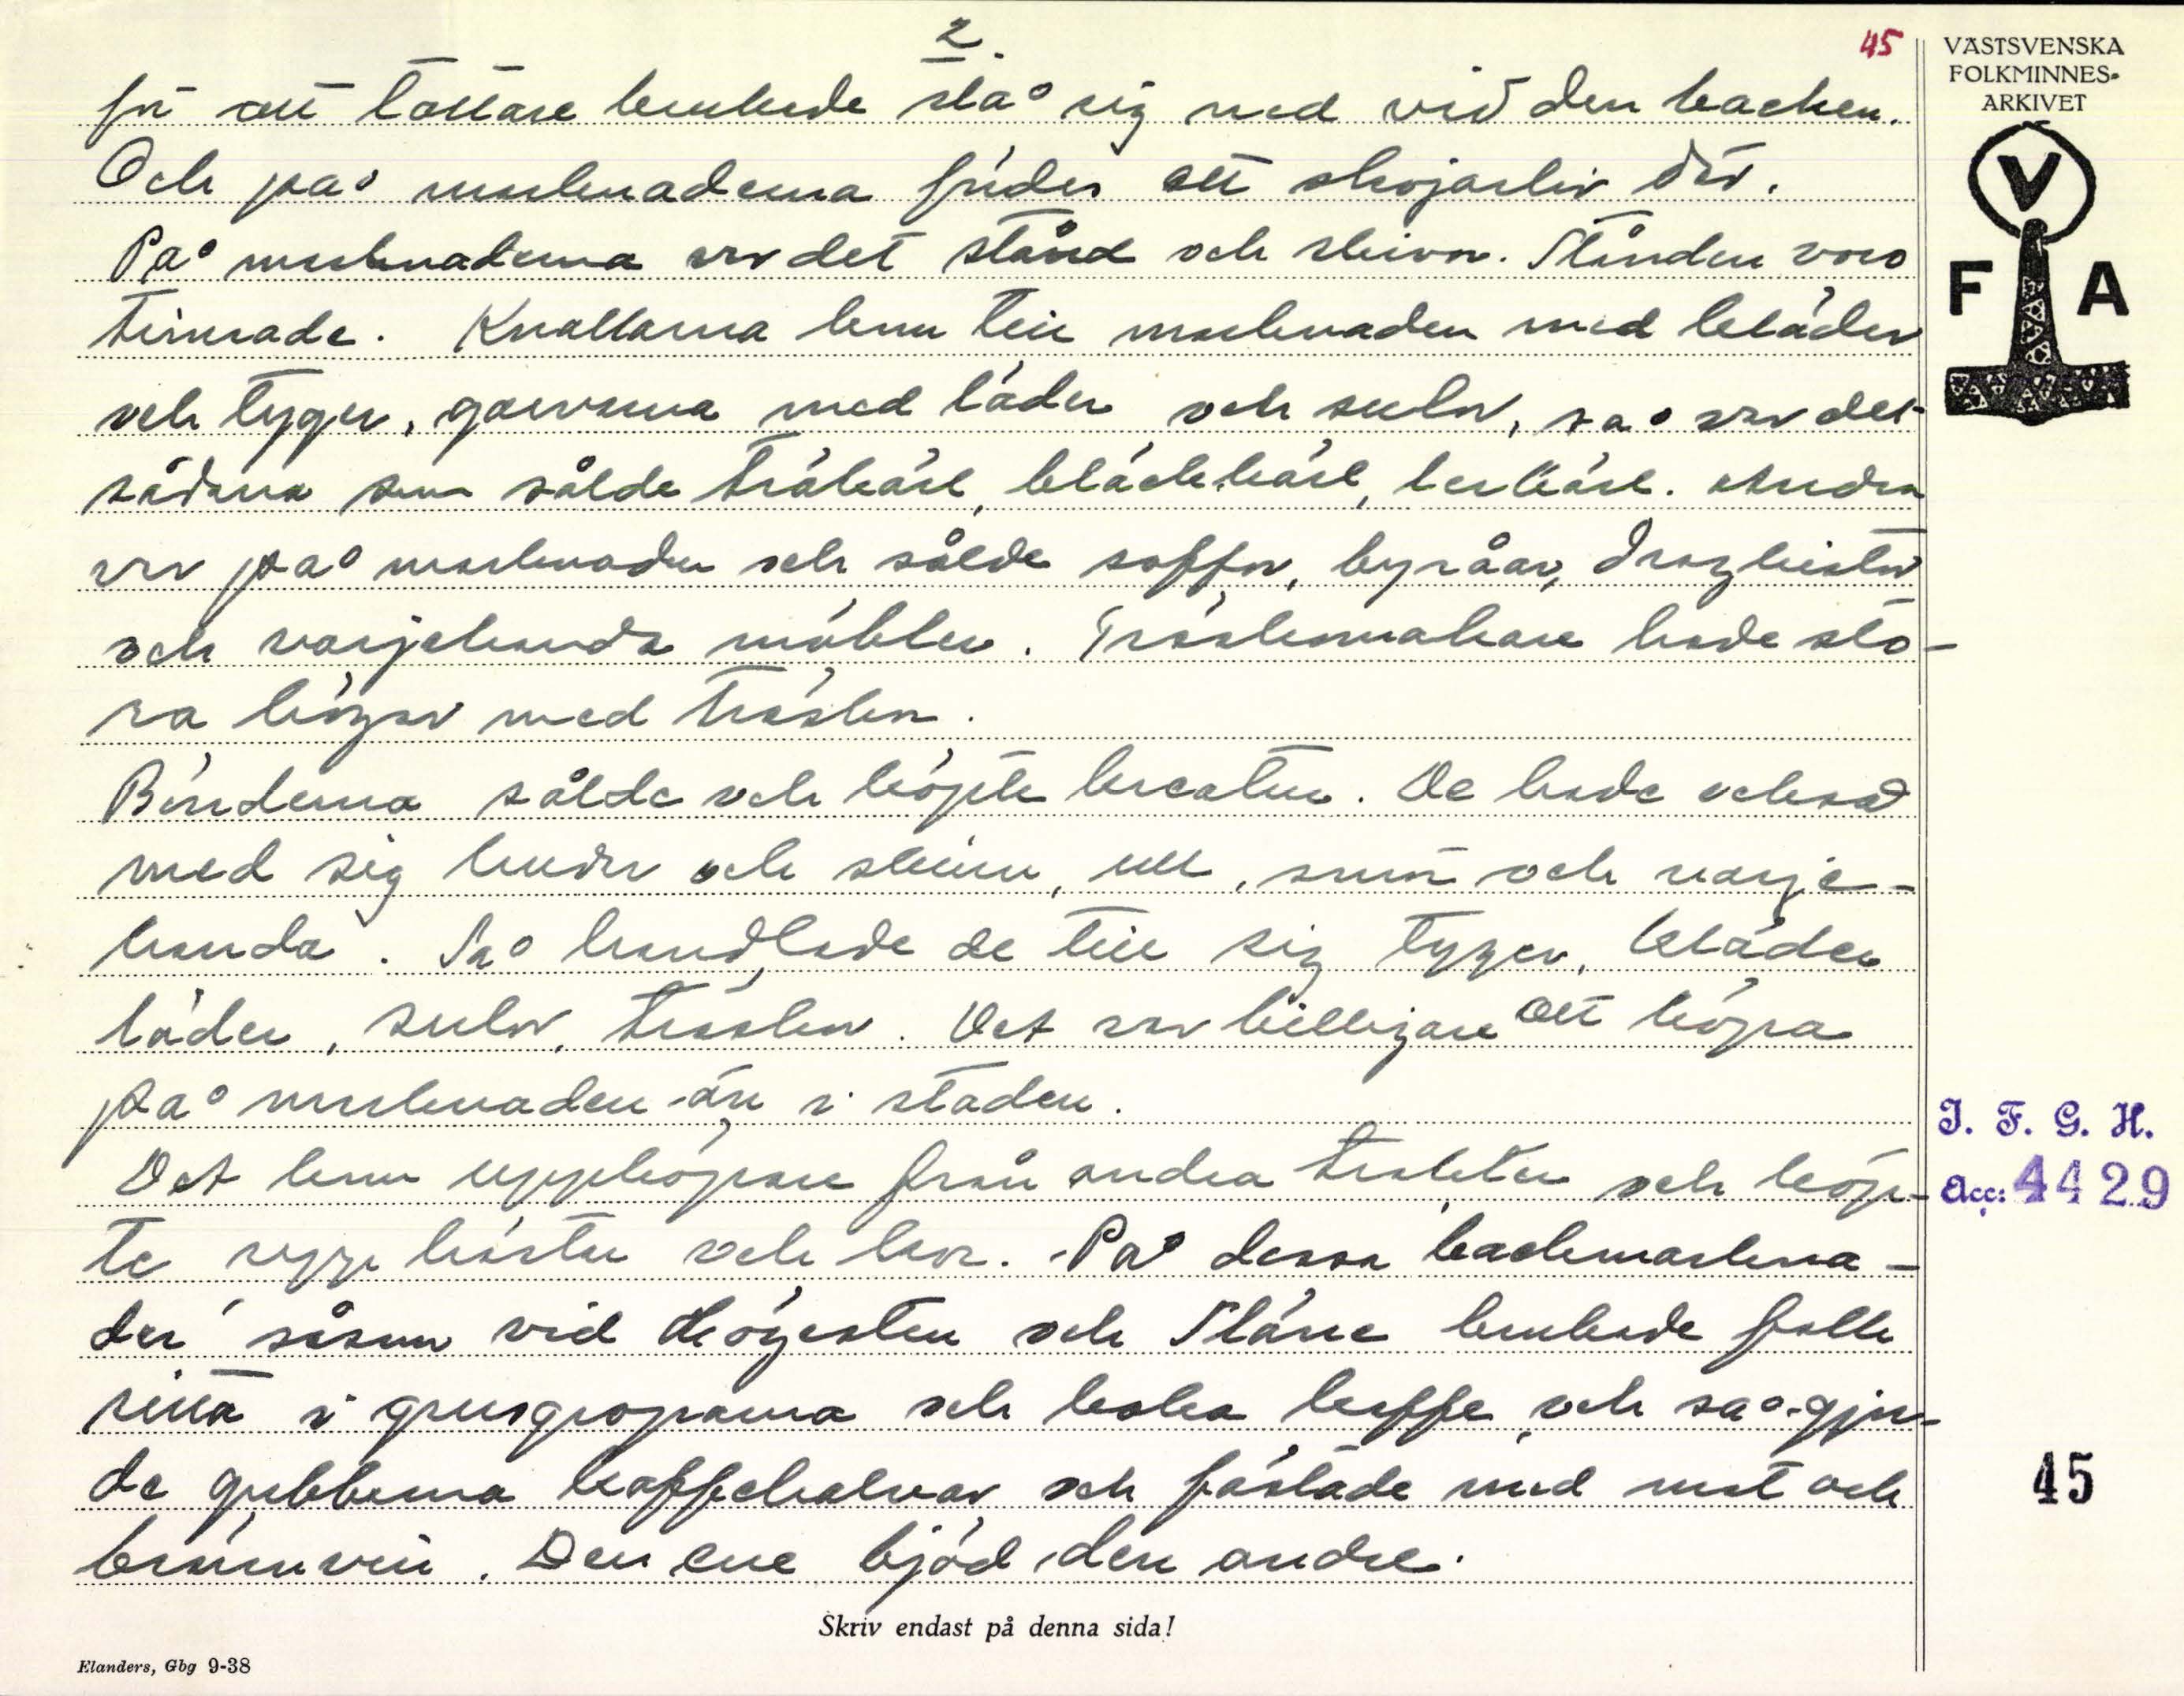 2.
45
för att tattare brukade slå sig ned vid den backen.
Och på marknaderna fördes ett skojarliv där.
På marknaderna var det stånd och skivor. Stånden voro
timrade. Knallarna kom till marknaden med kläder
och tyger, garvarna med läder och sulor, så var det
sådana som sålde träkärl, bläckkärl, lerkärl. Andra
var på marknaden och sålde soffor, byråar, dragkistor
och varjehanda möbler. Träskomakare hade sto-
ra högar med träskor.
Bönderna sålde och köpte kreatur. De hade också
med sig hudar och skinn, ull, smör och varje-
handa. Så handlade de till sig tyger, kläder
läder, sulor, träskor. Det var billigare att köpa
på marknaden än i staden.
Det kom uppköpare från andra trakter och köp-
te upp hästar och kor. På dessa backmarkna-
der såsom vid Högesten och Släne brukade folk
sitta i grusgroparna och koka kaffe och så gjor-
de gubbarna kaffehalvor och fästade med mat och
brännvin. Den ene bjöd den andre.
Skriv endast på denna sida!
Elanders, Gbg 9-38
VÄSTSVENSKA
FOLKMINNES-
ARKIVET
V
F A
I. F. G. H.
Acc: 4429
45